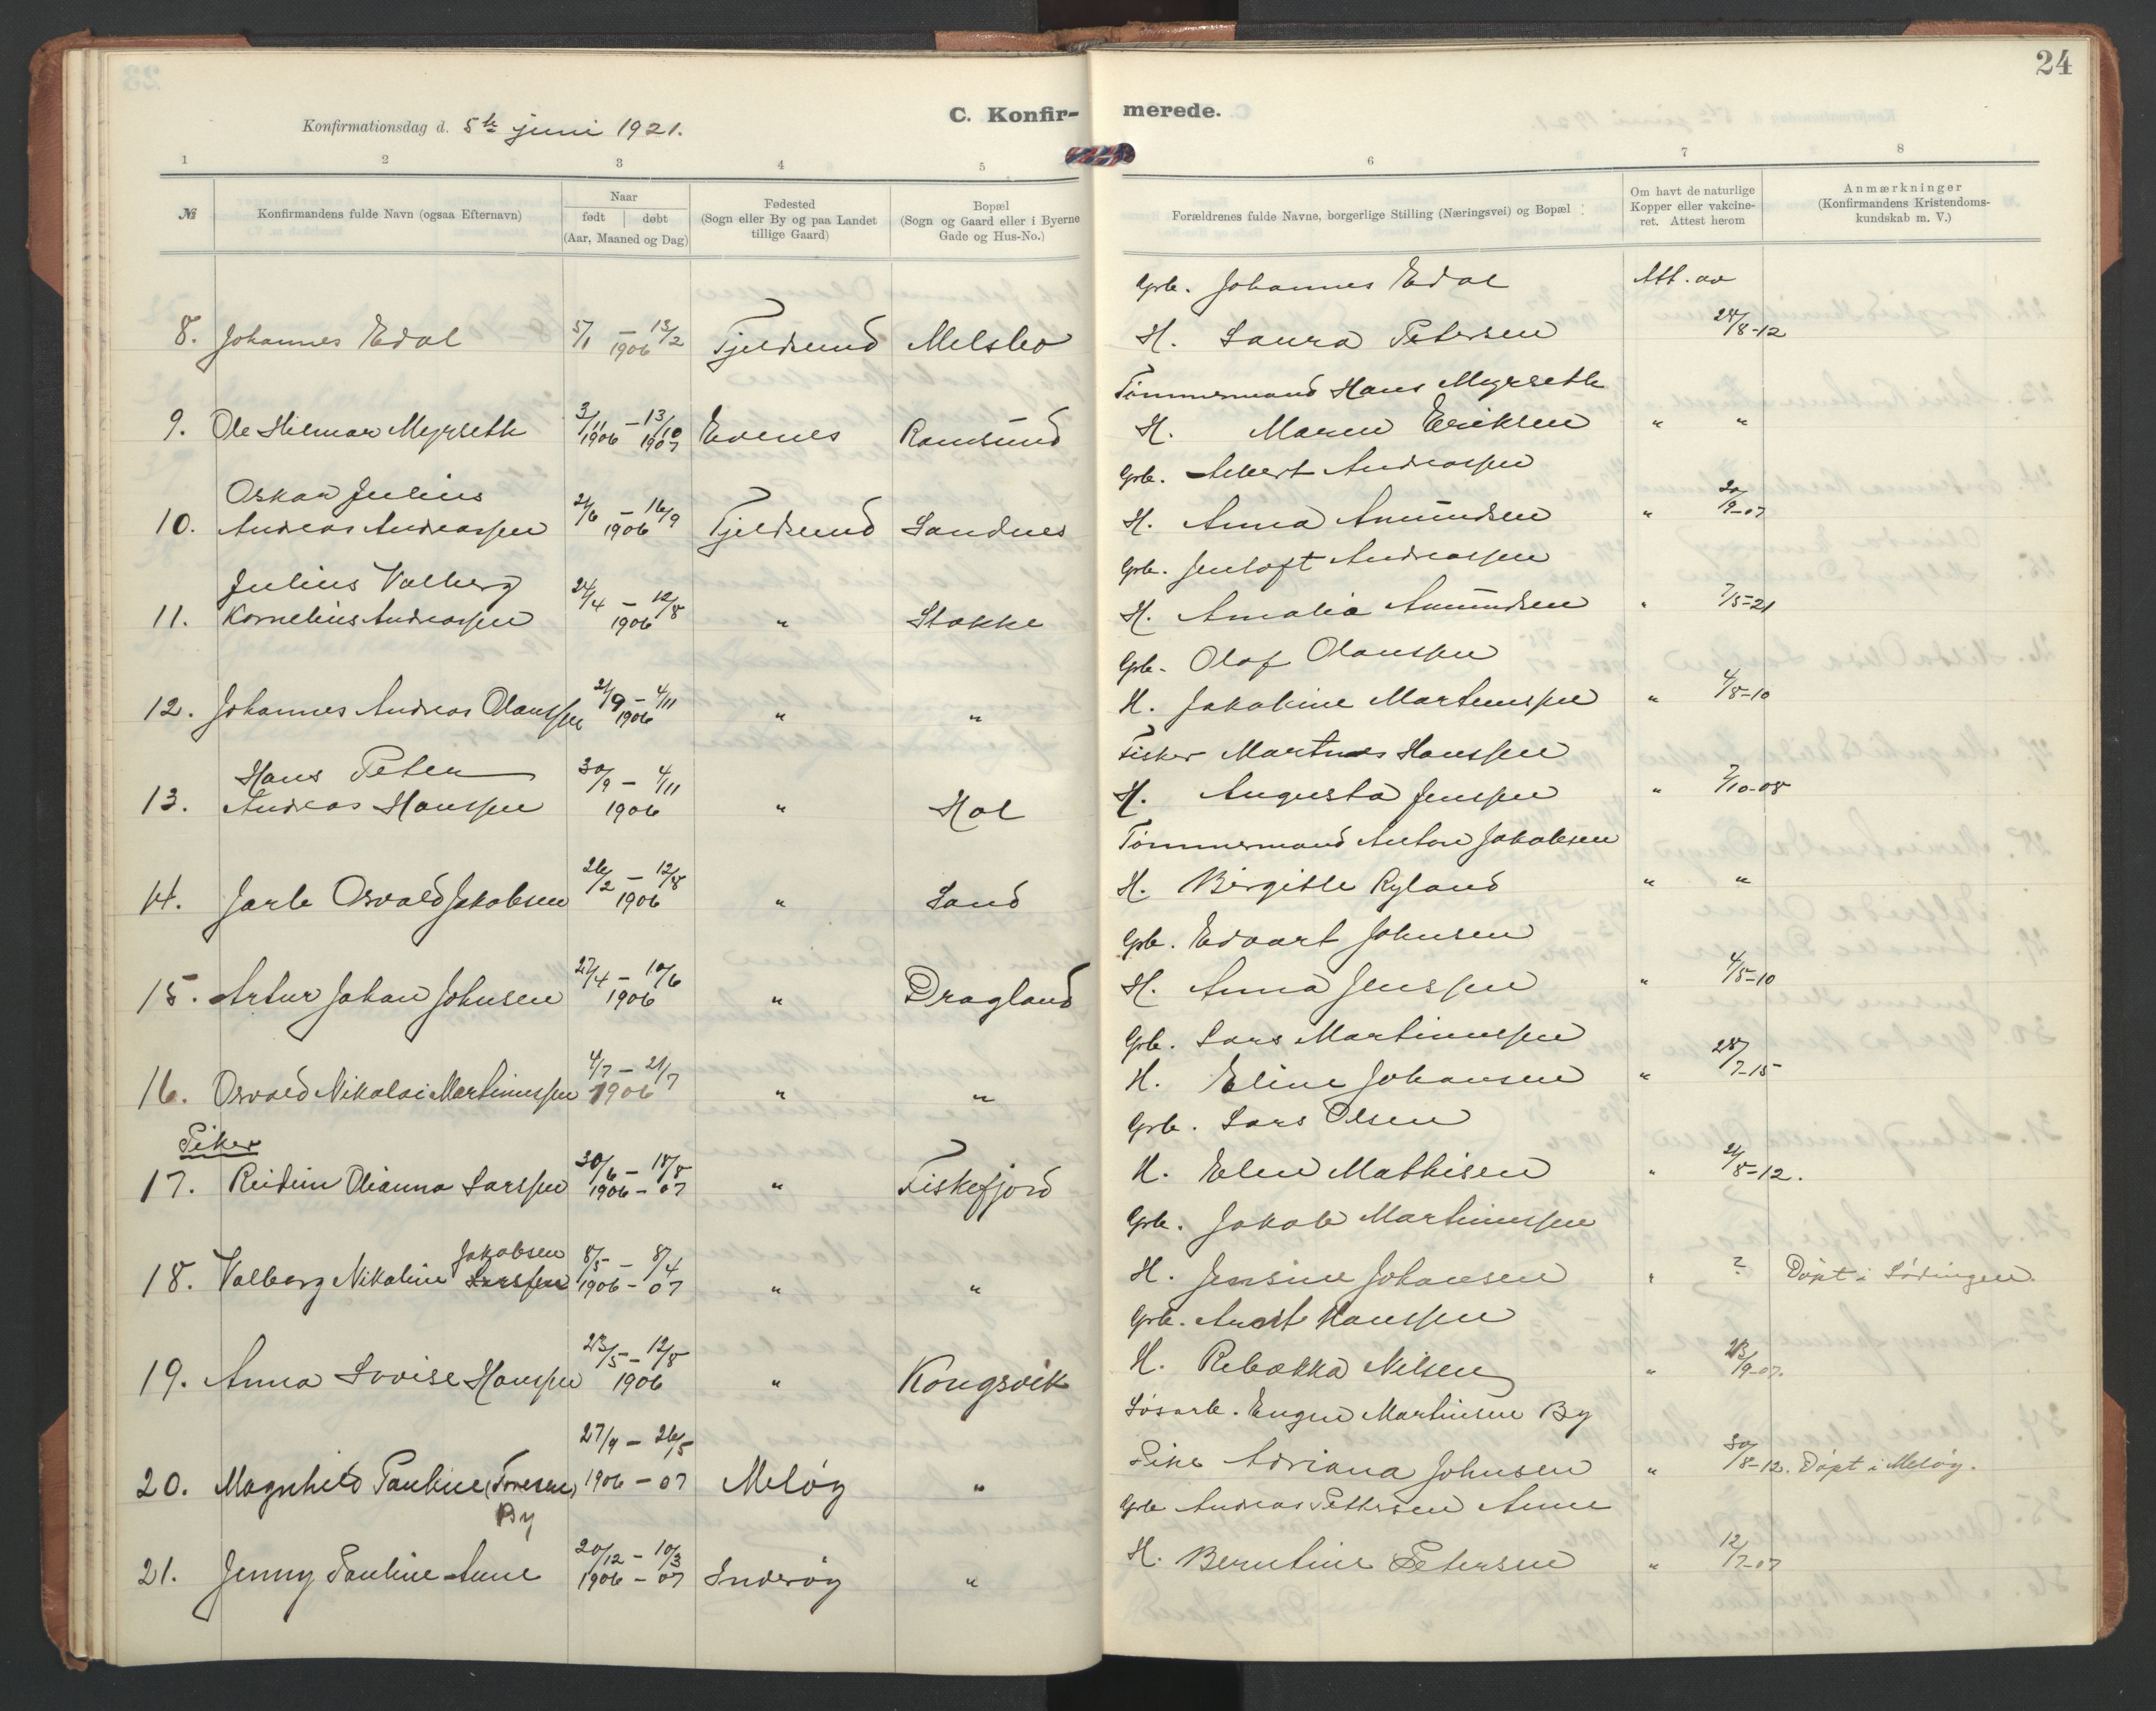 24
C. Konfirmerede.
Konfirmationsdag d. 5te juni 1921.
1 2 3 4 5 6 7 8
№ Konfirmandens fulde Navn (ogsaa Efternavn) Naar født døbt (Aar, Maaned og Dag) Fødested (Sogn eller By og paa Landet tillige Gaard) Bopæl (Sogn og Gaard eller i Byerne Gade og Hus-No.) Forældrenes fulde Navne, borgerlige Stilling (Næringsvei) og Bopæl Om havt de naturlige Kopper eller vakcineret. Attest herom Anmærkninger (Konfirmandens Kristendomskundskab m. V.)
Grb. Johannes Edal Att. av
8. Johannes Edal 5/1 – 13/2 1906 Tjeldsund Melsbo H. Laura Petersen 28/8-12
Tømmermand Hans Myrseth
9. Ole Hilmar Myrseth 3/11 1906 – 13/10 1907 Evenes Ramsund H. Maren Eriksen " "
Oskar Julius Grb. Albert Andreassen
10. Andreas Andreassen 21/6 – 16/9 1906 Tjeldsund Sandnes H. Anna Amundsen " 20/9-07
Julius Valberg Grb. Jentoft Andreassen
11. Kornelius Andreassen 24/4 – 12/8 1906 " Stokke H. Amalia Amundsen " 7/5-21
Grb. Olaf Olaussen
12. Johannes Andreas Olaussen 21/9 – 4/11 1906 " " H. Jakobine Martinussen " 4/8-10
Hans Peter Fisker Martines Hanssen
13. Andreas Hanssen 30/9 – 4/11 1906 " Hol H. Augusta Jenssen " 7/10-08
Tømmermand Anton Jakobsen
14. Jarle Osvald Jakobsen 26/2 – 12/8 1906 " Sand H. Birgitte Ryland " "
Grb. Edvart Johnsen
15. Artur Johan Johnsen 27/4 – 10/6 1906 " Dragland H. Anna Jenssen " 4/8-10
Grb. Lars Martinussen
16. Osvald Nikolai Martinussen 4/7 – 21/7 1906 " " H. Eline Johansen " 28/7-15
Piker Grb. Lars Olsen
17. Reidun Olianna Larssen 30/6 – 18/8 1906 – 07 " Fiskefjord H. Elen Mathisen " 21/8-12.
Jakobsen Grb. Jakob Martinussen
18. Valborg Nikoline Larssen 8/5 – 8/4 1906 – 07 " " H. Jensine Johansen " ? Døpt i Lødingen.
Grb. Arnt Hanssen
19. Anna Lovise Hanssen 23/5 – 12/8 1906 " Kongsvik H. Rebækka Nilsen " 23/9-07.
Løsarb. Eugen Martinsen By
20. Magnhild Pauline (Toresen) By 27/9 – 26/5 1906 – 07 Meløy " Pike Adriana Johnsen " 30/8-12. Døpt i Meløy.
Grb. Andreas Pettersen Aune
21. Jenny Pauline Aune 20/12 – 10/3 1906 – 07 Inderøy " H. Berntine Petersen " 12/7-07